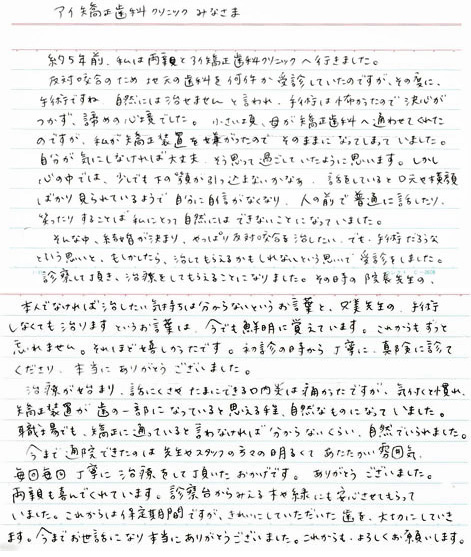 アイ矯正歯科クリニック みなさま
約5年前、私は両親とアイ矯正歯科クリニックへ行きました。
反対咬合のため地元の歯科を何件か受診していたのですが、その度に、
手術ですね 自然には治せません と言われ、手術は怖かったので決心が
つかず、諦めの心境でした。 小さい頃、母が矯正歯科へ通わせてくれた
のですが、私が矯正装置を嫌がったので そのままになってしまっていました。
自分が気にしなければ大丈夫、そう思って過ごしていたように思います。しかし
心の中では、少しでも下の顎が引っ込まないかなあ、話をしていると口元や横顔
ばかり見られているようで自分に自信がなくなり、人の前で普通に話したり、
笑ったりすることは私にとって自然にはできないことになっていました。
そんな中、結婚が決まり、やっぱり反対咬合を治したい、でも、手術だろうな
という思いと、もしかしたら、治してもらえるかもしれないという思いで受診をしました。
診察して頂き、治療をしてもらえることになりました。その時の院長先生の、
本人でなければ治したい気持ちは分からないというお言葉と、久美先生の、手術
しなくても治りますというお言葉は、今でも鮮明に覚えています。これからもずっと
忘れません。それほど嬉しかったです。初診の時から丁寧に、真険に診て
くださり、本当にありがとうございました。
治療が始まり、話にくさや たまにできる口内炎は痛かったですが、気付くと慣れ、
矯正装置が歯の一部になっていると思える程、自然なものになっていました。
職場でも、矯正に通っていると言わなければ分からないくらい、自然でいられました。
今まで通院できたのは先生やスタッフの方々の明るくてあたたかい雰囲気、
毎回毎回丁寧に治療をして頂いたおかげです。 ありがとうございました。
両親も喜んでくれています。診察台からみえる木や緑にも安心させてもらって
いました。これからはより保定期間ですが、きれいにしていただいた歯を、大切にしていき
ます。今までお世話になり本当にありがとうございました。これからも、よろしくお願いします。